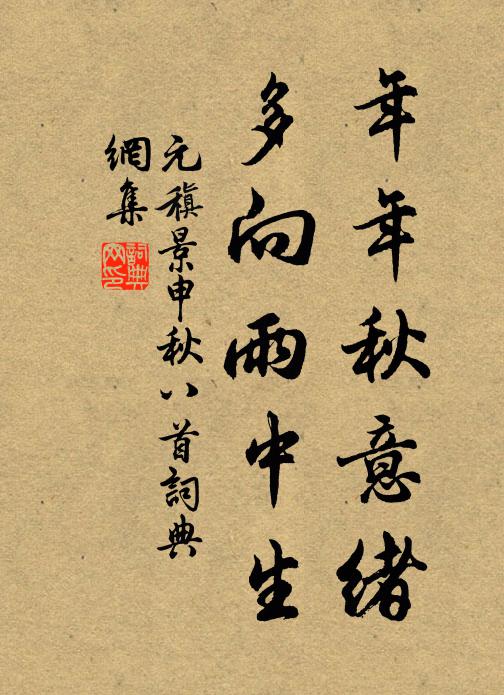 年年秋意緒
多向雨中生
元稹景申秋八首詞典
網集
詞典
网印